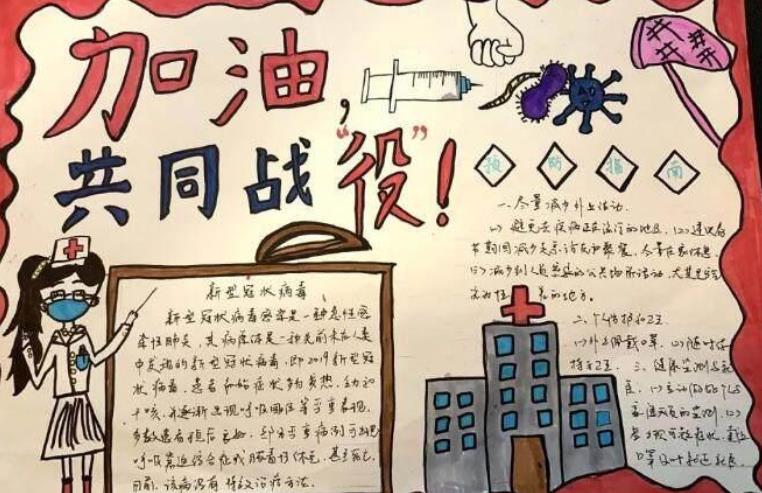 加油,
共同战“役”!
预防指南
新型冠状病毒
新型冠状病毒感染是一种急性感
染性肺炎,其病原体是一种先前未在人类
中发现的新型冠状病毒,即2019新型冠
状病毒,患者初始症状多为发热、乏力和
干咳,并逐渐出现呼吸困难等严重表现,
多数患者预后良好,部分严重病例可出现
呼吸窘迫综合征或脓毒性休克,甚至死亡
目前,该病没有特效治疗方法。
一、尽量减少外出活动.
(1)避免去疾病正在流行的地区,(2)建议春
节期间减少走亲访友和聚餐,尽量在家休息,
(3)减少到人员密集的公共场所活动,尤其是
的地方。
二、个人防护和卫
(1)外出佩戴口罩,(2)随时保
持手卫生 三、健康监测与就
医,(1)主动